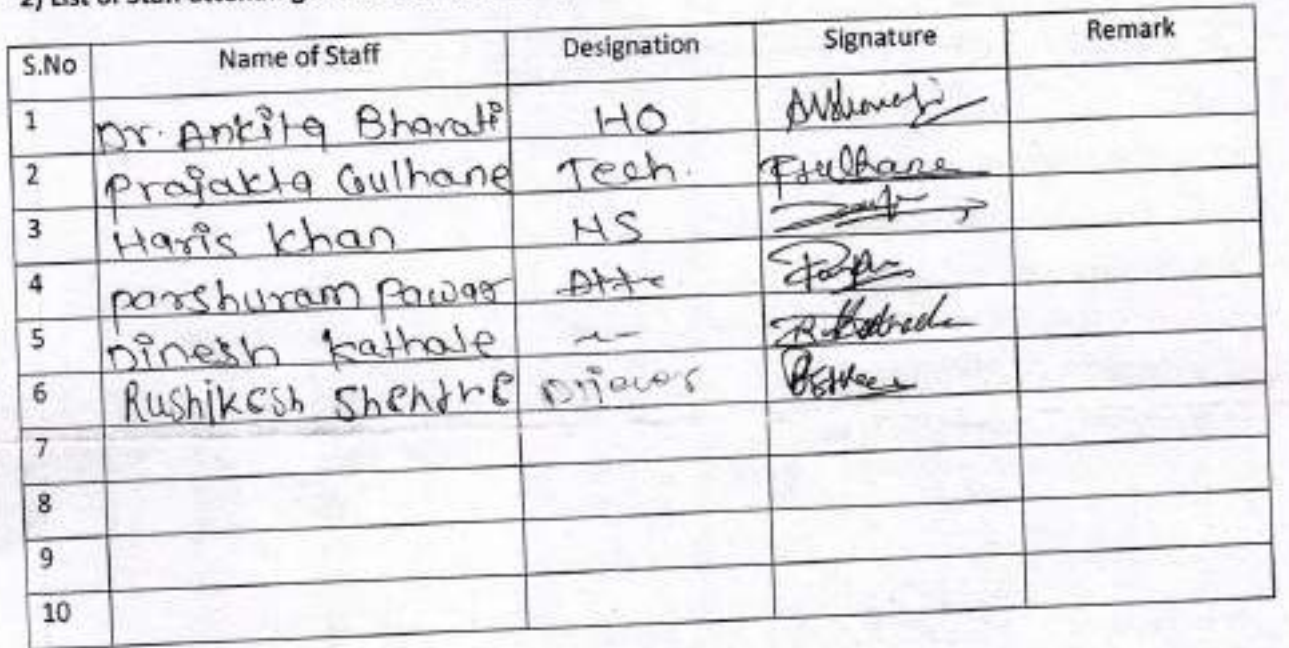 2) List of Staff attending
S.No Name of Staff Designation Signature Remark
1 Dr. Ankita Bharati HO
2 Prajakta Gulhane Tech. PGulhane
3 Haris Khan
4 Parshuram Pawar Att
5 Dinesh Kathale
6 Rushikesh Shendre
7
8
9
10